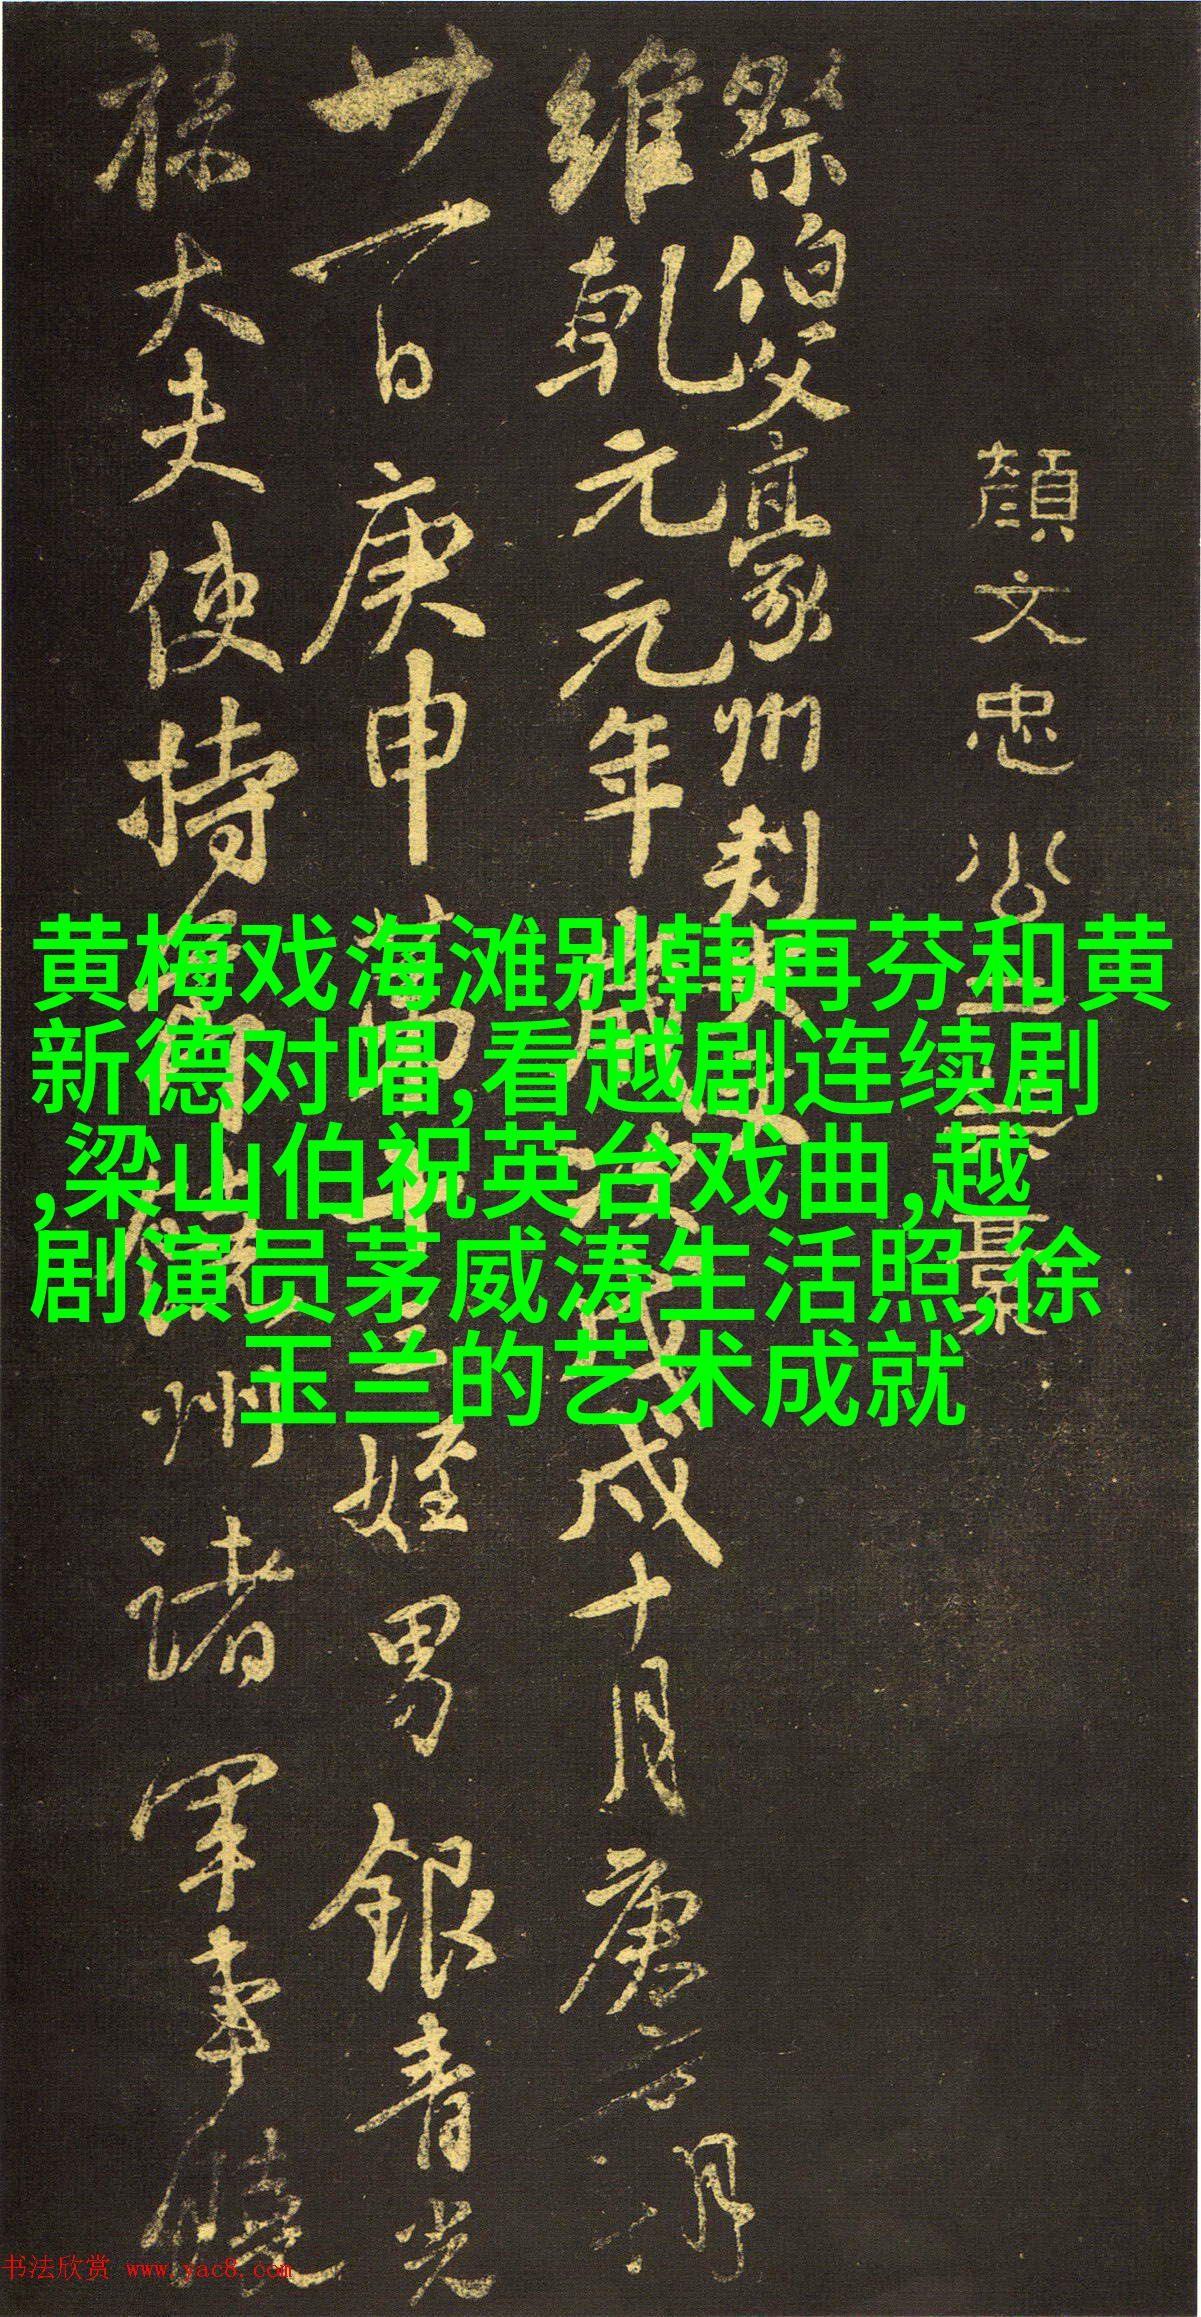 顔文忠公
祭伯父豪州刺史
維乾元元年歲次戊戌十月庚寅朔
廿一日庚申第十三姪男銀青光
祿大夫使持節饒州諸軍事饒
黄梅戏海滩别韩再芬和黄
新德对唱,看越剧连续剧
,梁山伯祝英台戏曲,越
剧演员茅威涛生活照,徐
玉兰的艺术成就
书法欣赏 www.yac8.com